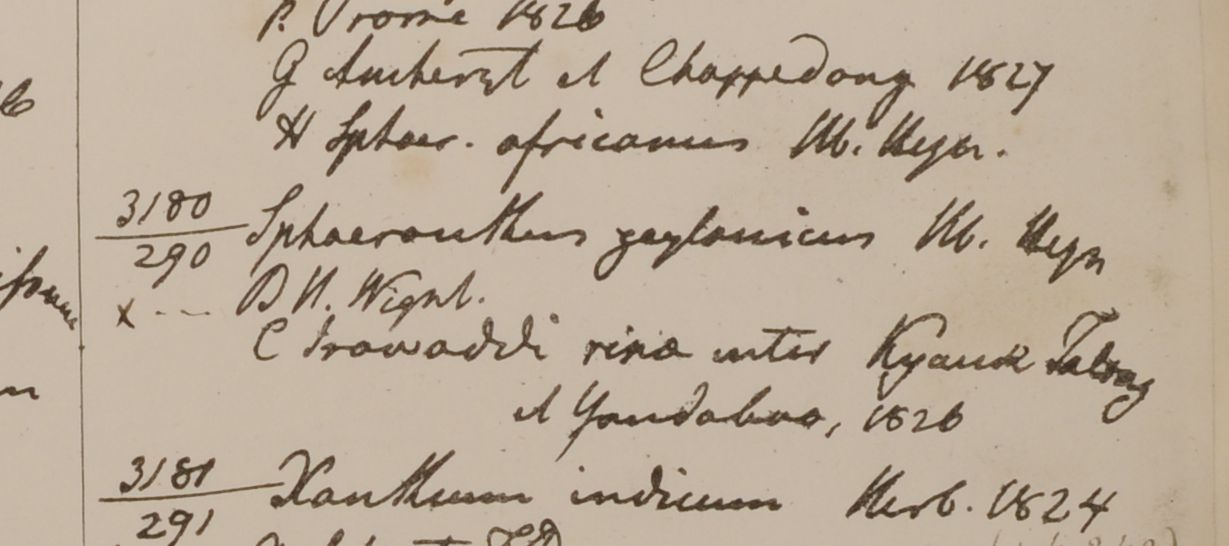 P. Prome 1826
G Amherst et Chappedong 1827
H Sphaer. africanus Hb. Heyn.
3180
290
Sphaeranthus zeylanicus Hb. Heyn
x --- B H. Wight.
C Irawaddi ripa inter Kyauk Talong
et Yandaboo, 1826
3181
291
Xanthium indicum Herb. 1824